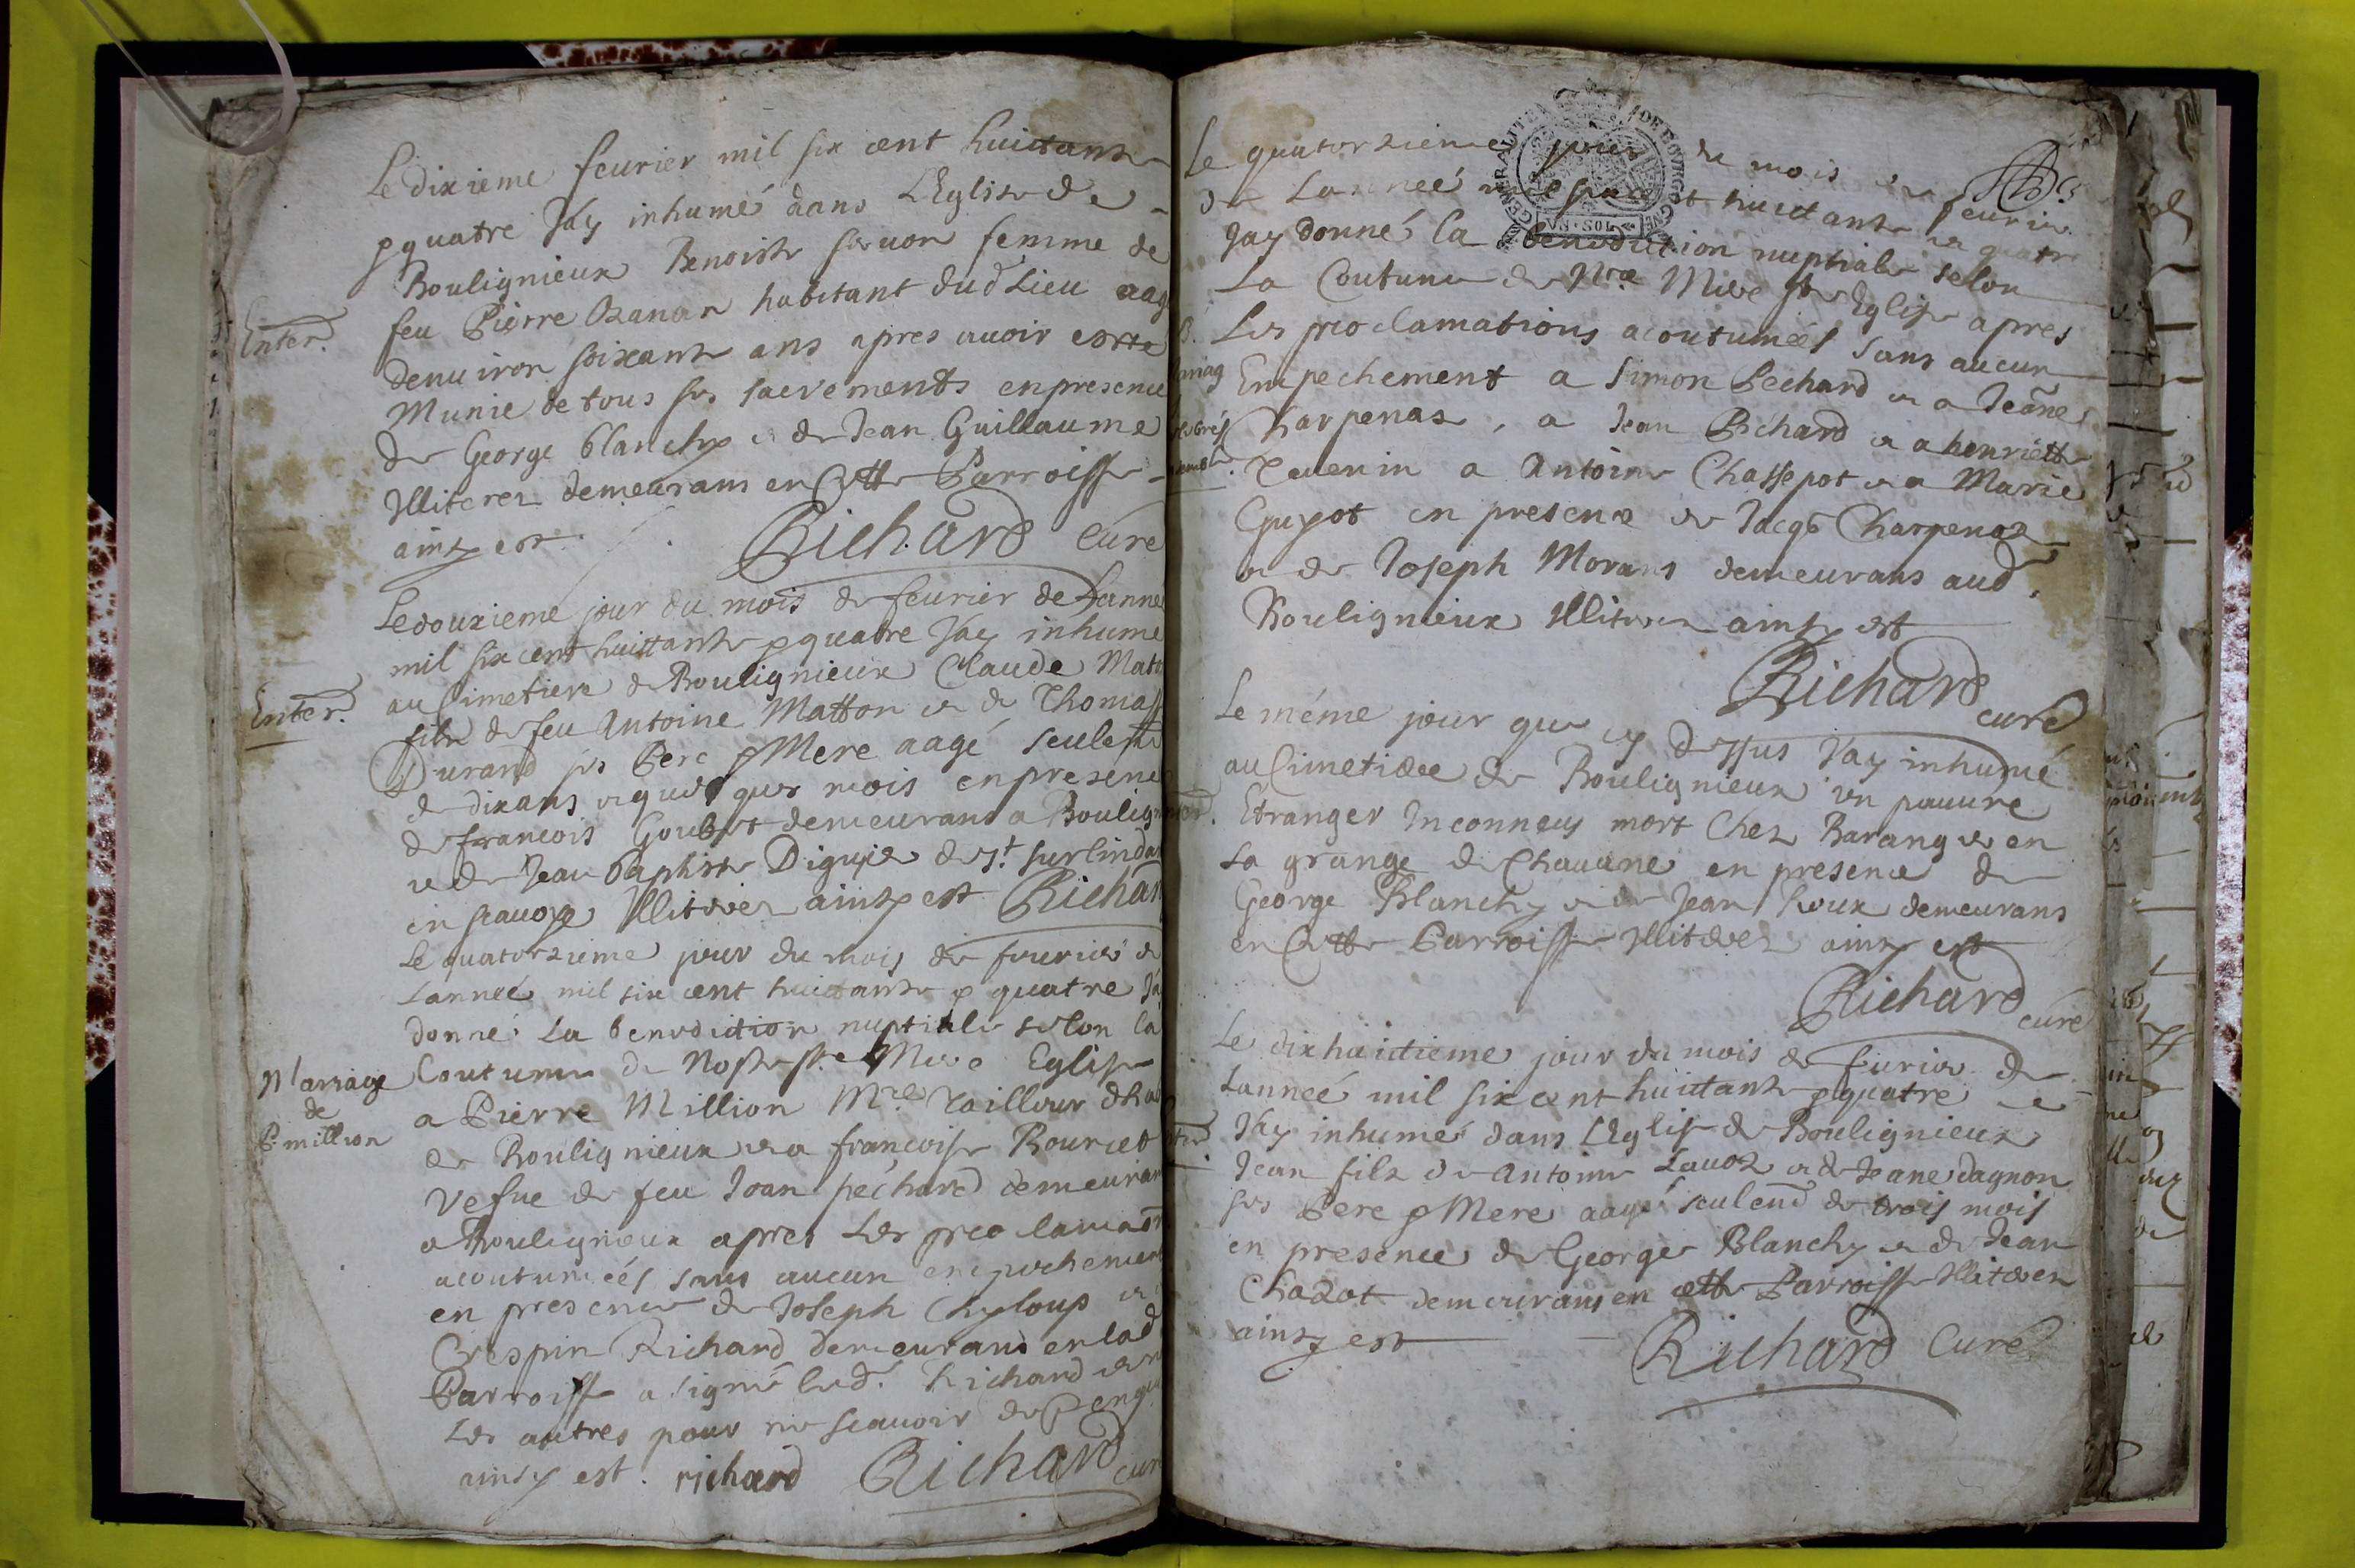 Le dixieme feurier mil six cent huictante
& quatre Jay inhumé dans LEglise de
Boulignieux Benoiste
femme de
feu Pierre Ozanan habitant dud Lieu aagé
Enter.
denuiron soixante ans apres auoir esté
Munie de tous ses sacrements en presence
de George Blanchy & de Jean Guillaume
Illiterez demeurans en Cette Parroisse
ainsy est Richard Curé
Le douzieme jour du mois de feurier de Lannee
mil six cent huittante & quatre Jay inhumé
au Cimetiere de Boulignieux Claude
Enter.
filz de feu Antoine Matton & de
Durand ses Pere & Mere aagé seulemt
de dix ans & quelques mois en presence
de francois demeurant a
& de Jean Baptiste de St.
en scauoye Illiterez ainsy est Richard
Le quatorzieme jour du mois de feurier de
Lanneé mil six cent huictante & quatre
donné La benediction nuptiale selon la
Mariage
de
P. million
Coutume de Nostre ste Mere Eglise
a Pierre Million Mre Tailleur
de Boulignieux & a francoise
Vefue de feu Jean péchard
a Boulignieux apres Les
acoutumeés sans aucun
en presence de Joseph Chyloup &
Crespin Richard demeurans en lad
Parroisse a signé led. Richard
Les autres pour ne scauoir de
ainsy est. richard Richard curé
Le quatorzieme jour du mois de feurier
de Lanneé mil six cent huictante & quatre
GENERALITE DE BOVRGOGNE
Jay donné la benediction nuptiale selon
La Coutume de Nre Mere ste Eglise apres
Les proclamations acoutumeés sans aucun
Empechement a Simon Péchard & a Jeane
Karpenas, a Jean Péchard & a henriette
Teuenin a Antoine Chassepot & a Marie
Guyot en presence de Jacqs Charpenas
& de Joseph Morans demeurans aud.
Boulignieux Illiterez ainsy est
Richard curé
Le méme jour que cy dessus Jay inhumé
au Cimetiere de Boulignieux vn pauure
Etranger Inconneu mort Chez en
La grange de Chauane en presence de
George Blanchy & de Jean Roux demeurans
en Cette Parroisse Illiterez ainsy est
Richard curé
Le dixhuictieme jour du mois de feurier de
Lanneé mil six cent huictante & quatre
Jay inhumé dans LEglise de Boulignieux
Jean filz de Antoine & de Jeane dagnon
ses Pere & Mere aagé seulemt de trois mois
en presence de George Blanchy & de Jean
Chazot demeurans en cette Parroisse Illiterez
ainsy est Richard Curé